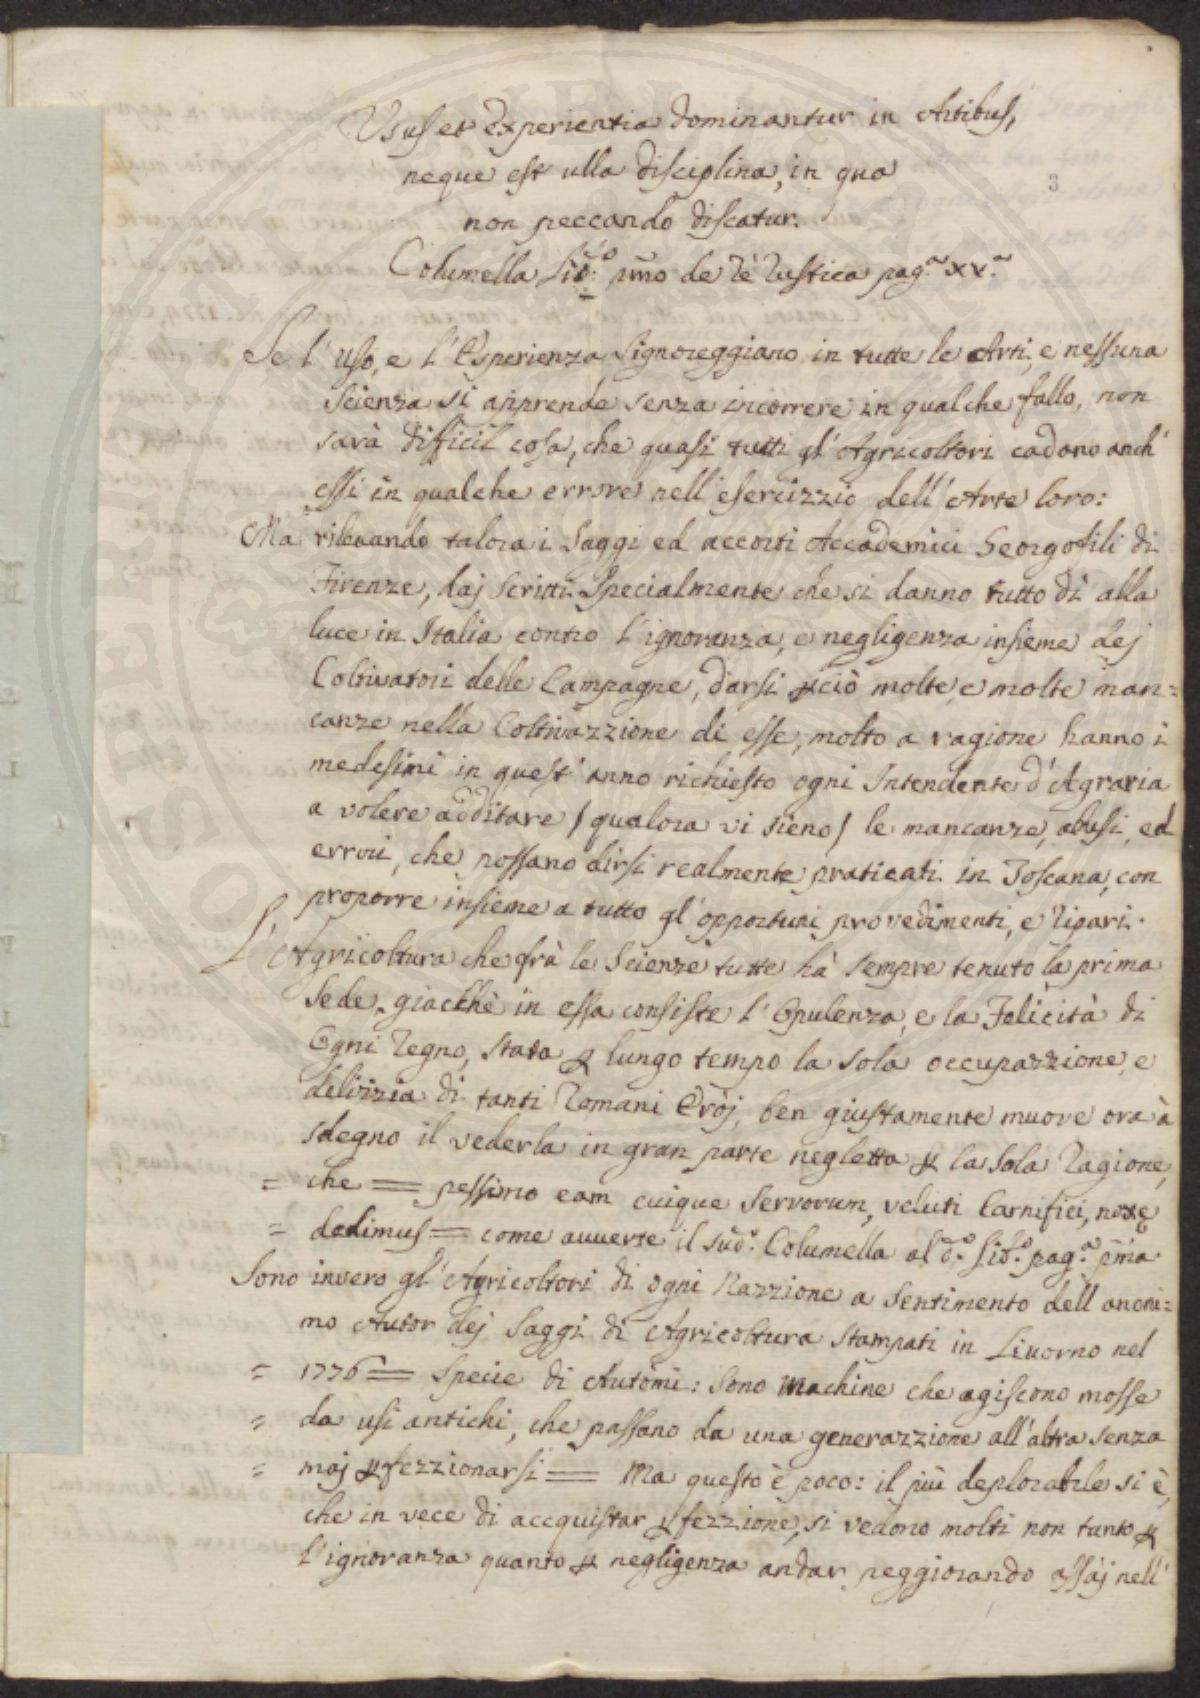 Usus et experientia dominantur in Artibus,
neque est ulla disciplina, in qua
non peccando discatur.
3
Columella Lib.º pmo de Rè Rustica pag.ª XX.ª
Se l'uso, e l'Esperienza signoreggiano in tutte le Arti, e nessuna
scienza si apprende senza incorrere in qualche fallo, non
sarà difficil cosa, che quasi tutti gl'Agricoltori cadono anch'
essi in qualche errore nell'esercizzio dell'Arte loro:
Ma rilevando talora i Saggi ed accorti Accademici Georgofili di
Firenze, daj scritti specialmente che si danno tutto dì alla
luce in Italia contro l'ignoranza, e negligenza insieme dej
Coltivatori delle Campagne, darsi pciò molte, e molte man=
canze nella Coltivazzione di esse, molto a ragione hanno i
medesimi in quest'anno richiesto ogni Intendente d'Agraria
a volere additare / qualora vi sieno / le mancanze, abusi, ed
errori, che possano dirsi realmente praticati in Toscana, con
proporre insieme a tutto gl'opportuni provedimenti, e ripari.
L'Agricoltura che frà le Scienze tutte hà sempre tenuto la prima
Sede, giacchè in essa consiste l'Opulenza, e la Felicità di
Ogni Regno, stata p lungo tempo la sola occupazzione, e
delizia di tanti Romani Eròj, ben giustamente muove ora à
sdegno il vederla in gran parte negletta p la sola Ragione,
= che = pessimo eam cuique servorum, veluti Carnifici, noxę
= dedimus = come avverte il sud.º Columella al d.º Lib.º pag.ª pma
Sono invero gl'Agricoltori di ogni Nazzione a sentimento dell'anoni=
mo Autor dej Saggi di Agricoltura stampati in Livorno nel
= 1776 = Specie di Autòmi: sono machine che agiscono mosse
= da usi antichi, che passano da una generazzione all'altra senza
= maj pfezzionarsi = Ma questo è poco: il più deplorabile si è,
che in vece di accquistar pfezzione, si vedono molti non tanto p
l'ignoranza quanto p negligenza andar peggiorando assàj nell'